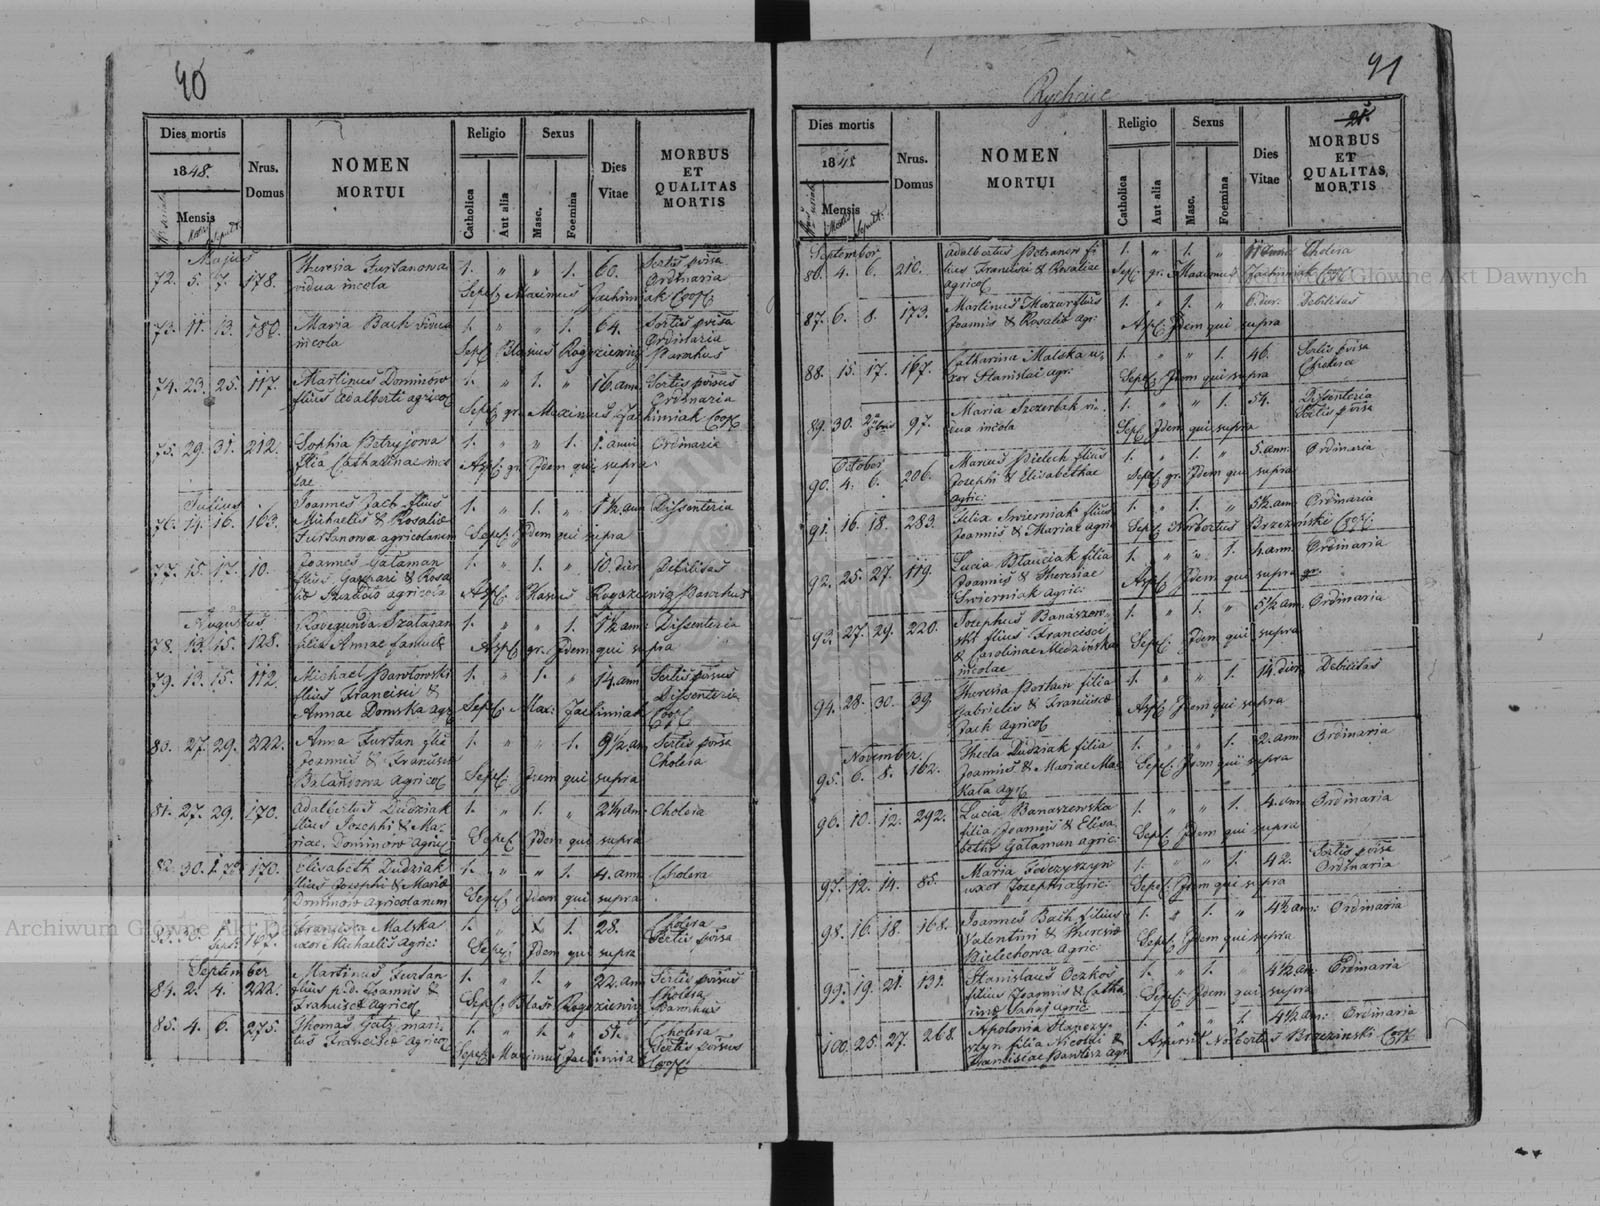 40
Dies mortis
1848.
Mensis
Nrus.
Domus
NOMEN
MORTUI
Religio
Catholica
Aut alia
Sexus
Masc.
Foemina
Dies
Vitae
MORBUS
ET
QUALITAS
MORTIS
Majus
72. 5. 7. 178. Theresia Furtanowa 1. " " 1. 60. Sertis pvisa
vidua incola Ordinaria
Sepel: Maximus Jachimiak Coop:
73. 11. 13. 180. Maria Bach vidua 1. " " 1. 64. Sertis pvisa
incola Ordinaria
Sepel: Blasius Rogoziewicz Parochus
74. 23. 25. 117. Martinus Dominow 1. " 1. " 16. ann Sertis pvisus
filius Adalberti agricol Ordinaria
Sepel: gr. Maximus Jachimiak Coop:
75. 29. 31. 212. Sophia Petryjowa 1. " " 1. 1. anni Ordinaria
filia Catharinae inco
lae
Asp: gr. Idem qui supra
Julius
76. 14. 16. 163. Joannes Jach filius 1. " 1. " 1½ ann Dissenteria
Michaelis & Rosaliae
Furtanowa agricolarum
Sepel: Idem qui supra
77. 15. 17. 10. Joannes Galaman 1. " 1. " 10. dier Debilitas
filius Gaspari & Rosa
agricola
Asp: Blasius Rogoziewicz Parochus
Augustus
78. 13. 15. 128. Radegunda Szalagan 1. " " 1. 1½ ann: Dissenteria
filia Annae famulae
Asp: gr. Idem qui supra
79. 13. 15. 112. Michael Pawlowski 1. " 1. " 14. ann Sertis pvisus
filius Francisci & Dissenteria
Annae Domska agr
Sepel: Max: Jachimiak Coop:
80. 27. 29. 222. Anna Furtan filia 1. " " 1. 9½ an Sertis pvisa
Joannis & Francisca Cholera
agricol
Sepel: Idem qui supra
81. 27. 29. 170. Adalbertus Dudziak 1. " 1. " 2½ an: Cholera
filius Josephi & Ma-
riae Dominow Agric:
Sepel: Idem qui supra
82. 30. 1. 170. Elisabeth Dudziak 1. " " 1. 4. ann Cholera
filius Josephi & Mariae
Dominow Agricolarum
Sepel: Idem qui supra
Francisca Malska 1. " 1. 28. Cholera
uxor Michaelis agric: Sertis pvisa
Sepel: Idem qui supra
September
84. 2. 4. 222. Martinus Furtan 1. " 1. " 22. ann Sertis pvisus
filius p.d. Joannis & Cholera
Francisca Agricol
Sepel: Blasi: Rogoziewicz Parochus
85. 4. 6. 275. Thomas Gatz mari- 1. " 1. " 51. Cholera
tus Francisca Agricol Sertis pvisus
Sepel: Maximus Jachimiak Coop:
41
Rychcice
Dies mortis
1848
Mensis
Nrus.
Domus
NOMEN
MORTUI
Religio
Catholica
Aut alia
Sexus
Masc.
Foemina
Dies
Vitae
MORBUS
ET
QUALITAS
MORTIS
September
86. 4. 6. 210. Adalbertus fi 1. " 1. " Cholera
lius Francisci & Rosaliae
agricol
Sepel: gr. Maximus Jachimiak Coop:
87. 6. 8. 173. Martinus Mazur filius 1. " 1. " 6. dier. Debilitas
Joannis & Rosaliae agr:
Asp: Idem qui supra
88. 15. 17. 167. Catharina Malska u- 1. " " 1. 46. Sertis pvisa
xor Stanislai agr: Cholera
Sepel: Idem qui supra
89. 30. 97. Maria Szczerbak vi- 1. " " 1. 54. Dissenteria
dua incola Sertis pvisa
Sepel: Idem qui supra
October
90. 4. 6. 206. Marcus Pielech filius 1. " 1. " 5. ann: Ordinaria
Josephi & Elisabethae
agric:
Sepel: gr. Idem qui supra
91. 16. 18. 283. Felix Swierniak filius 1. " 1. " 5½ am Ordinaria
Joannis & Mariae agric
Sepel: Norbertus Brzezinski Coop:
92. 25. 27. 119. Lucia Blauciak filia 1. " " 1. 4 ann: Ordinaria
Joannis & Theresiae
Swierniak agric:
Asp: Idem qui supra gr.
93. 27. 29. 220. Josephus Banaszew- 1. " 1. " 5½ am Ordinaria
ski filius Francisci
& Carolinae Medzinska
incolae
Sepel: Idem qui supra
94. 28. 30. 39. Theresia filia 1. " " 1. 14. dier. Debilitas
Gabrielis & Franciscae
Jach agricol
Asp: Idem qui supra
November.
95. 6. 8. 162. Thecla Dudziak filia 1. " " 1. 2. ann Ordinaria
Joannis & Mariae Ma-
kala agr
Sepel: Idem qui supra
96. 10. 12. 292. Lucia Banaszewska 1. " " 1. 4. am Ordinaria
filia Joannis & Elisa
beth Galaman agric:
Sepel: Idem qui supra
97. 12. 14. 85. Maria Fedczyszyn 1. " " 1. 42. Sertis pvisa
uxor Josephi agric: Ordinaria
Sepel: Idem qui supra
98. 16. 18. 168. Joannes Bach filius 1. " 1. " 4½ am: Ordinaria
Valentini & Theresiae
Bielechowa agric:
Sepel: Idem qui supra
99. 19. 21. 131. Stanislaus Oczkos 1. " 1. " 4½ am. Ordinaria
filius Joannis & Catha
rinae agric
Sepel: Idem qui supra
100. 25. 27. 268. Apolonia 1. " " 1. 4½ am: Ordinaria
filia Nicolai &
Franciscae Pawlisz agr
Aspersit Norbertus Brzezinski Coop:
Archiwum Główne Akt Dawnych
Archiwum Główne Akt Dawnych